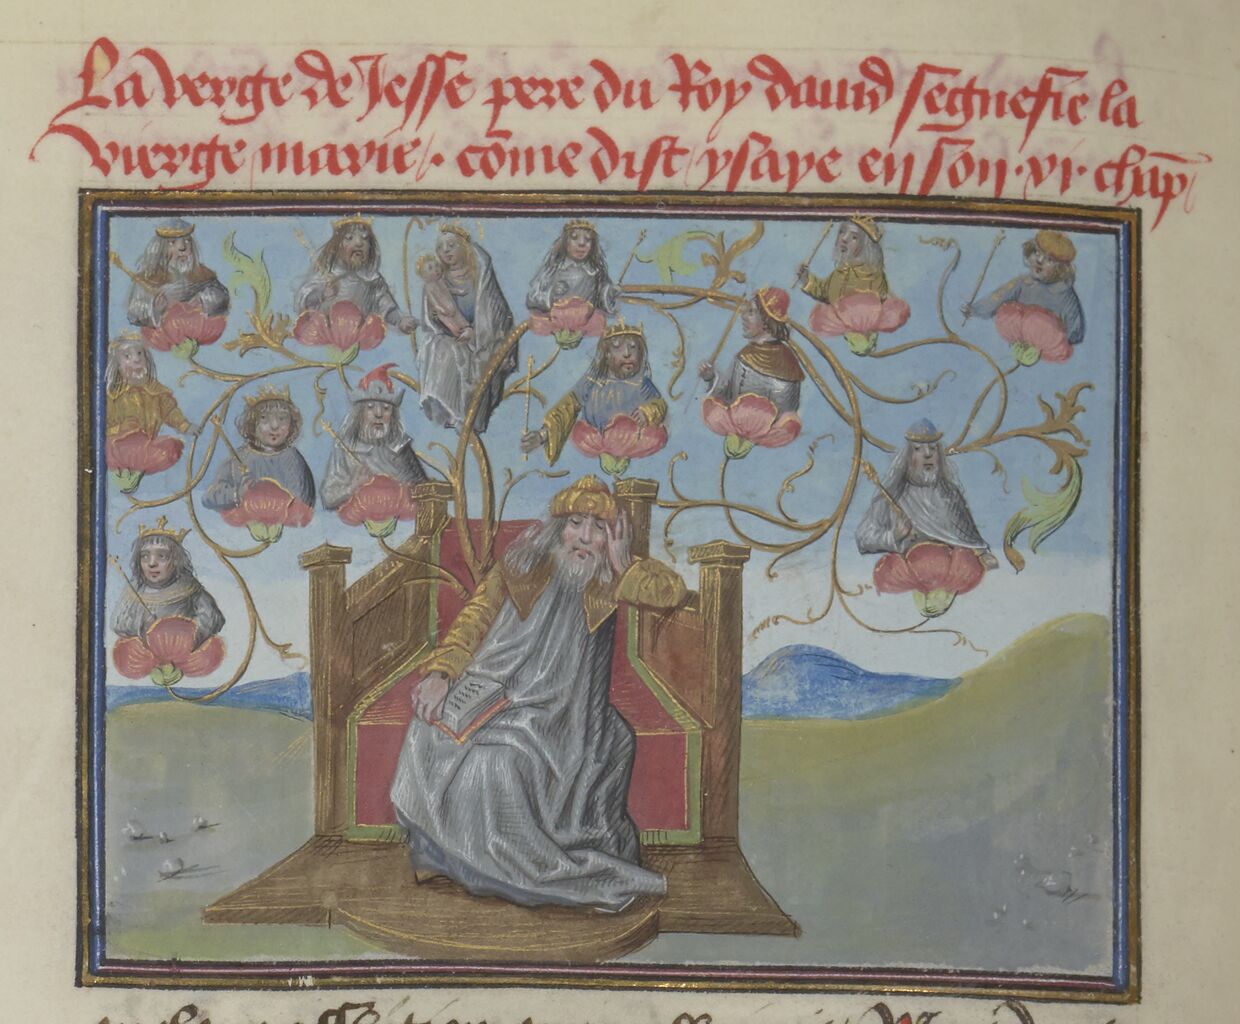 La verge de Jesse pere du Roy dauid segnefie la
vierge marie. cõme dist ysaye en son. xi. chap